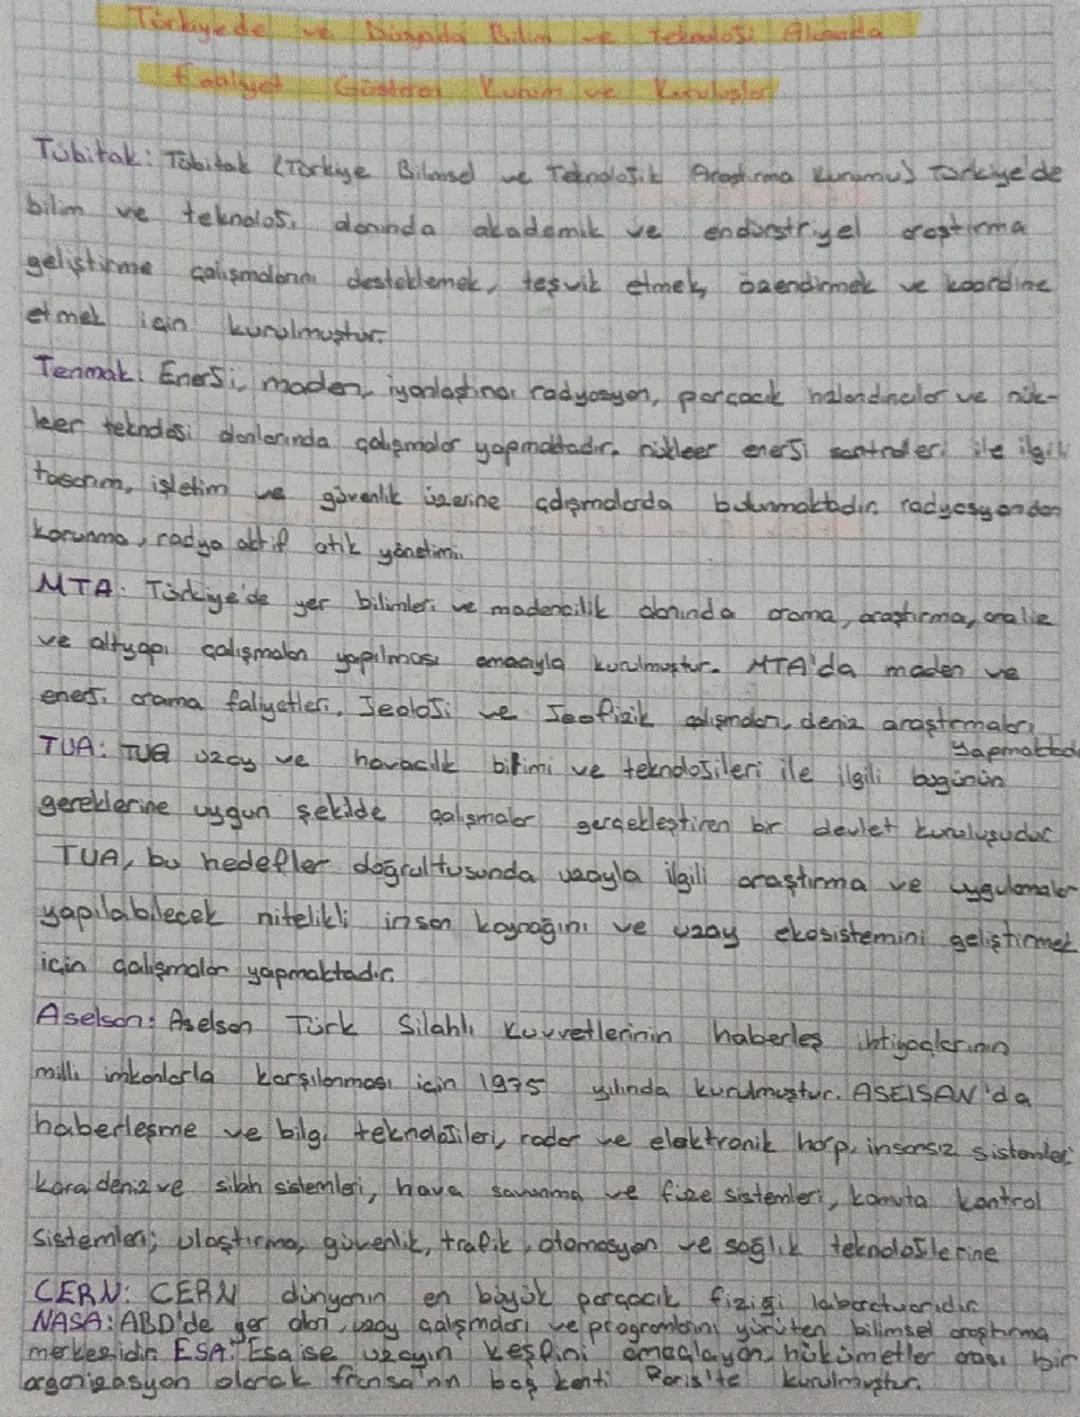 Türkiyede ve Dünyada Bilim ve teknoloji Alanında
Faaliyet Gösteren Kurum ve Kuruluşlar
Tübitak: Tübitak (Türkiye Bilimsel ve Teknolojik Araştırma Kurumu) Türkiye'de
bilim ve teknoloji alanında akademik ve endürstriyel araştırma
geliştirme çalışmalarını desteklemek, teşvik etmek, özendirmek ve koordine
etmek için kurulmuştur.
Tenmak: Enerji, maden, iyonlaştırıcı radyasyon, parçacık hızlandırıcılar ve nük-
leer teknoloji alanlarında çalışmalar yapmaktadır. nükleer enerji santralleri ile ilgili
tasarım, işletim ve güvenlik üzerine çalışmalarda bulunmaktadır. radyasyondan
korunma, radyo aktif atık yönetimi..
MTA: Türkiye'de yer bilimleri ve madencilik alanında arama, araştırma, analiz
ve altyapı çalışmaları yapılması amacıyla kurulmuştur. MTA'da maden ve
enerji arama faliyetleri, Jeoloji ve Jeofizik çalışmaları, deniz araştırmaları
yapmaktadır
TUA: TUA uzay ve havacılk bilimi ve teknolojileri ile ilgili bugünün
gereklerine uygun şekilde çalışmalar gerçekleştiren bir devlet kuruluşudur
TUA, bu hedefler doğrultusunda uzayla ilgili araştırma ve uygulamalar
yapılabilecek nitelikli insan kaynağını ve uzay ekosistemini geliştirmek
için çalışmalar yapmaktadır.
Aselsan: Aselsan Türk Silahlı Kuvvetlerinin haberleş ihtiyaçlarının
milli imkanlarla karşılanması için 1975 yılında kurulmuştur. ASELSAN'da
haberleşme ve bilgi teknolojileri, radar ve elektronik harp, insansız sistemler
kara deniz ve silah sistemleri, hava savunma ve füze sistemleri, komuta kontrol
sistemleri; ulaştırma, güvenlik, trafik, otomasyon ve sağlık teknolojilerine
CERN: CERN dünyanın en büyük parçacık fiziği laboratuarıdır
NASA: ABD'de yer alan, uzay çalışmaları ve programlarını yürüten bilimsel araştırma
merkezidir. ESA: Esa ise uzayın keşfini amaçlayan, hükümetler arası bir
organizasyon olarak fransa'nın baş kenti Paris'te kurulmuştur.